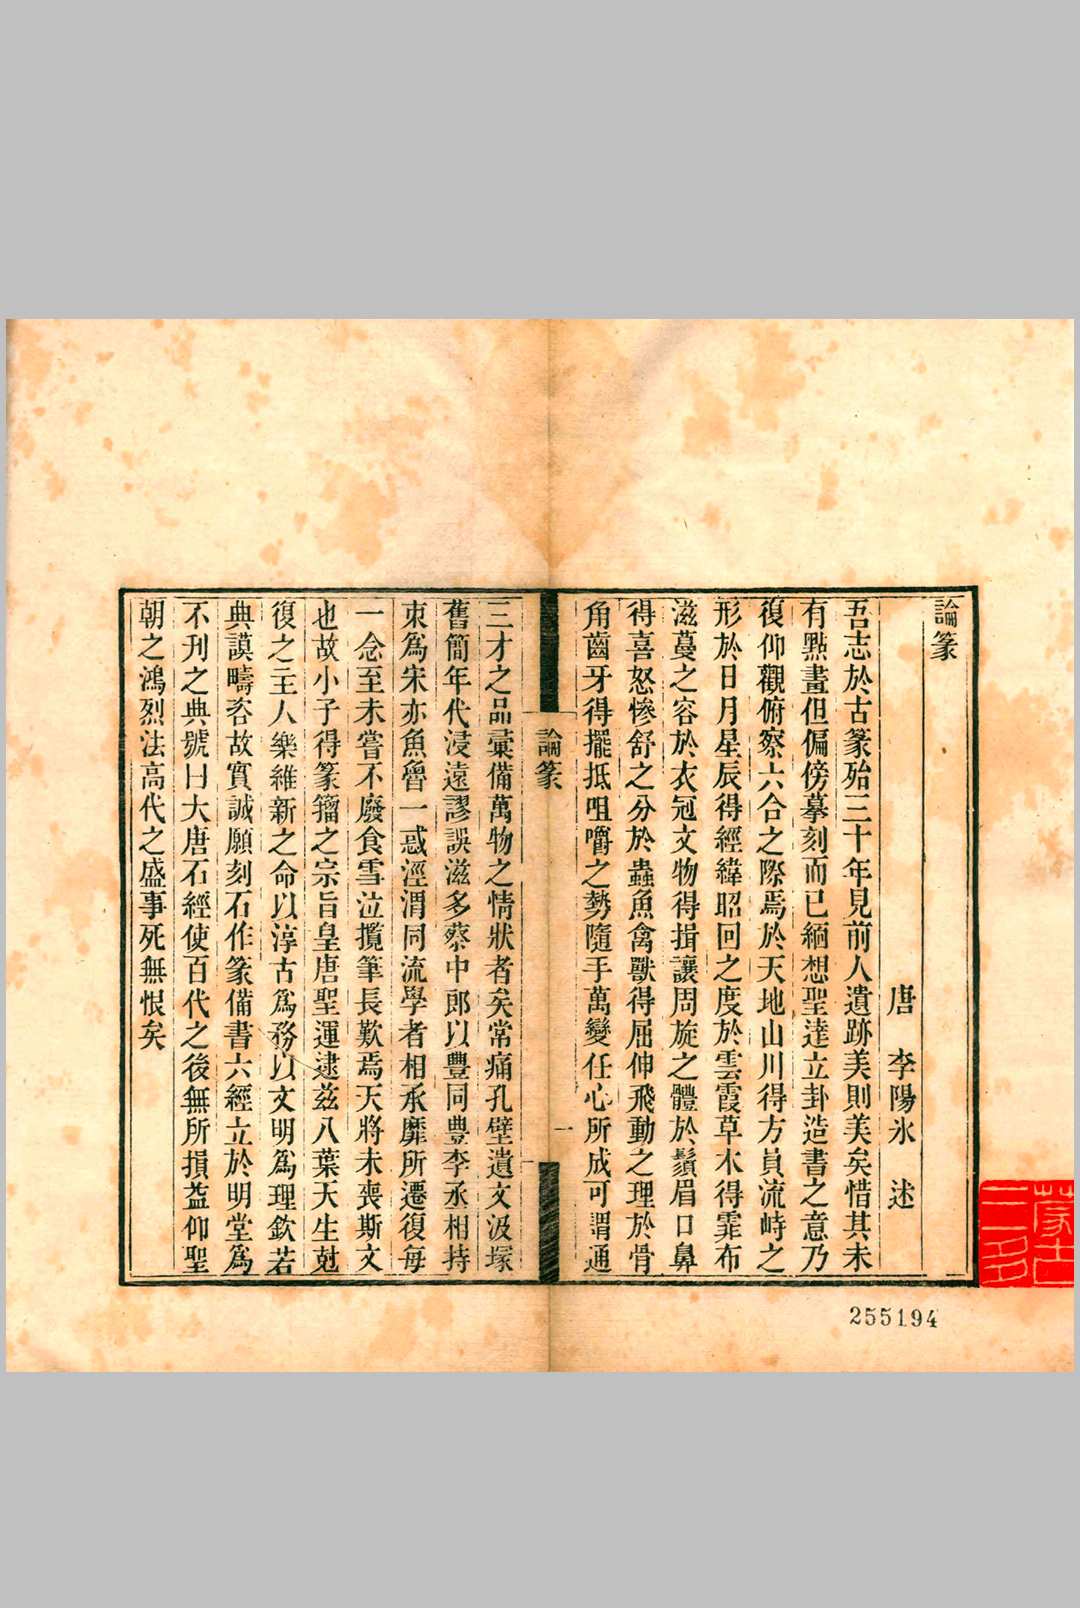 論篆
唐 李陽氷 述
吾志於古篆殆三十年見前人遺跡美則美矣惜其未
有㸃畫但偏傍摹刻而已緬想聖達立卦造書之意乃
復仰觀俯察六合之際焉於天地山川得方員流峙之
形於日月星辰得經緯昭回之度於雲霞草木得霏布
滋蔓之容於衣冠文物得揖讓周旋之體於鬚眉口鼻
得喜怒慘舒之分於蟲魚禽獸得屈伸飛動之理於骨
角齒牙得擺抵咀嚼之勢隨手萬變任心所成可謂通
論篆
一
三才之品彚備萬物之情狀者矣常痛孔壁遺文汲塚
舊簡年代浸遠謬誤滋多蔡中郎以豐同豊李丞相持
朿為宋亦魚魯一惑涇渭同流學者相承靡所遷復每
一念至未嘗不廢食雪泣攬筆長歎焉天將未喪斯文
也故小子得篆籀之宗旨皇唐聖運逮兹八葉天生尅
復之主人樂維新之命以淳古為務以文明為理欽若
典謨疇咨故實誠願刻石作篆備書六經立於明堂為
不刊之典號曰大唐石經使百代之後無所損益仰聖
朝之鴻烈法高代之盛事死無恨矣
255194